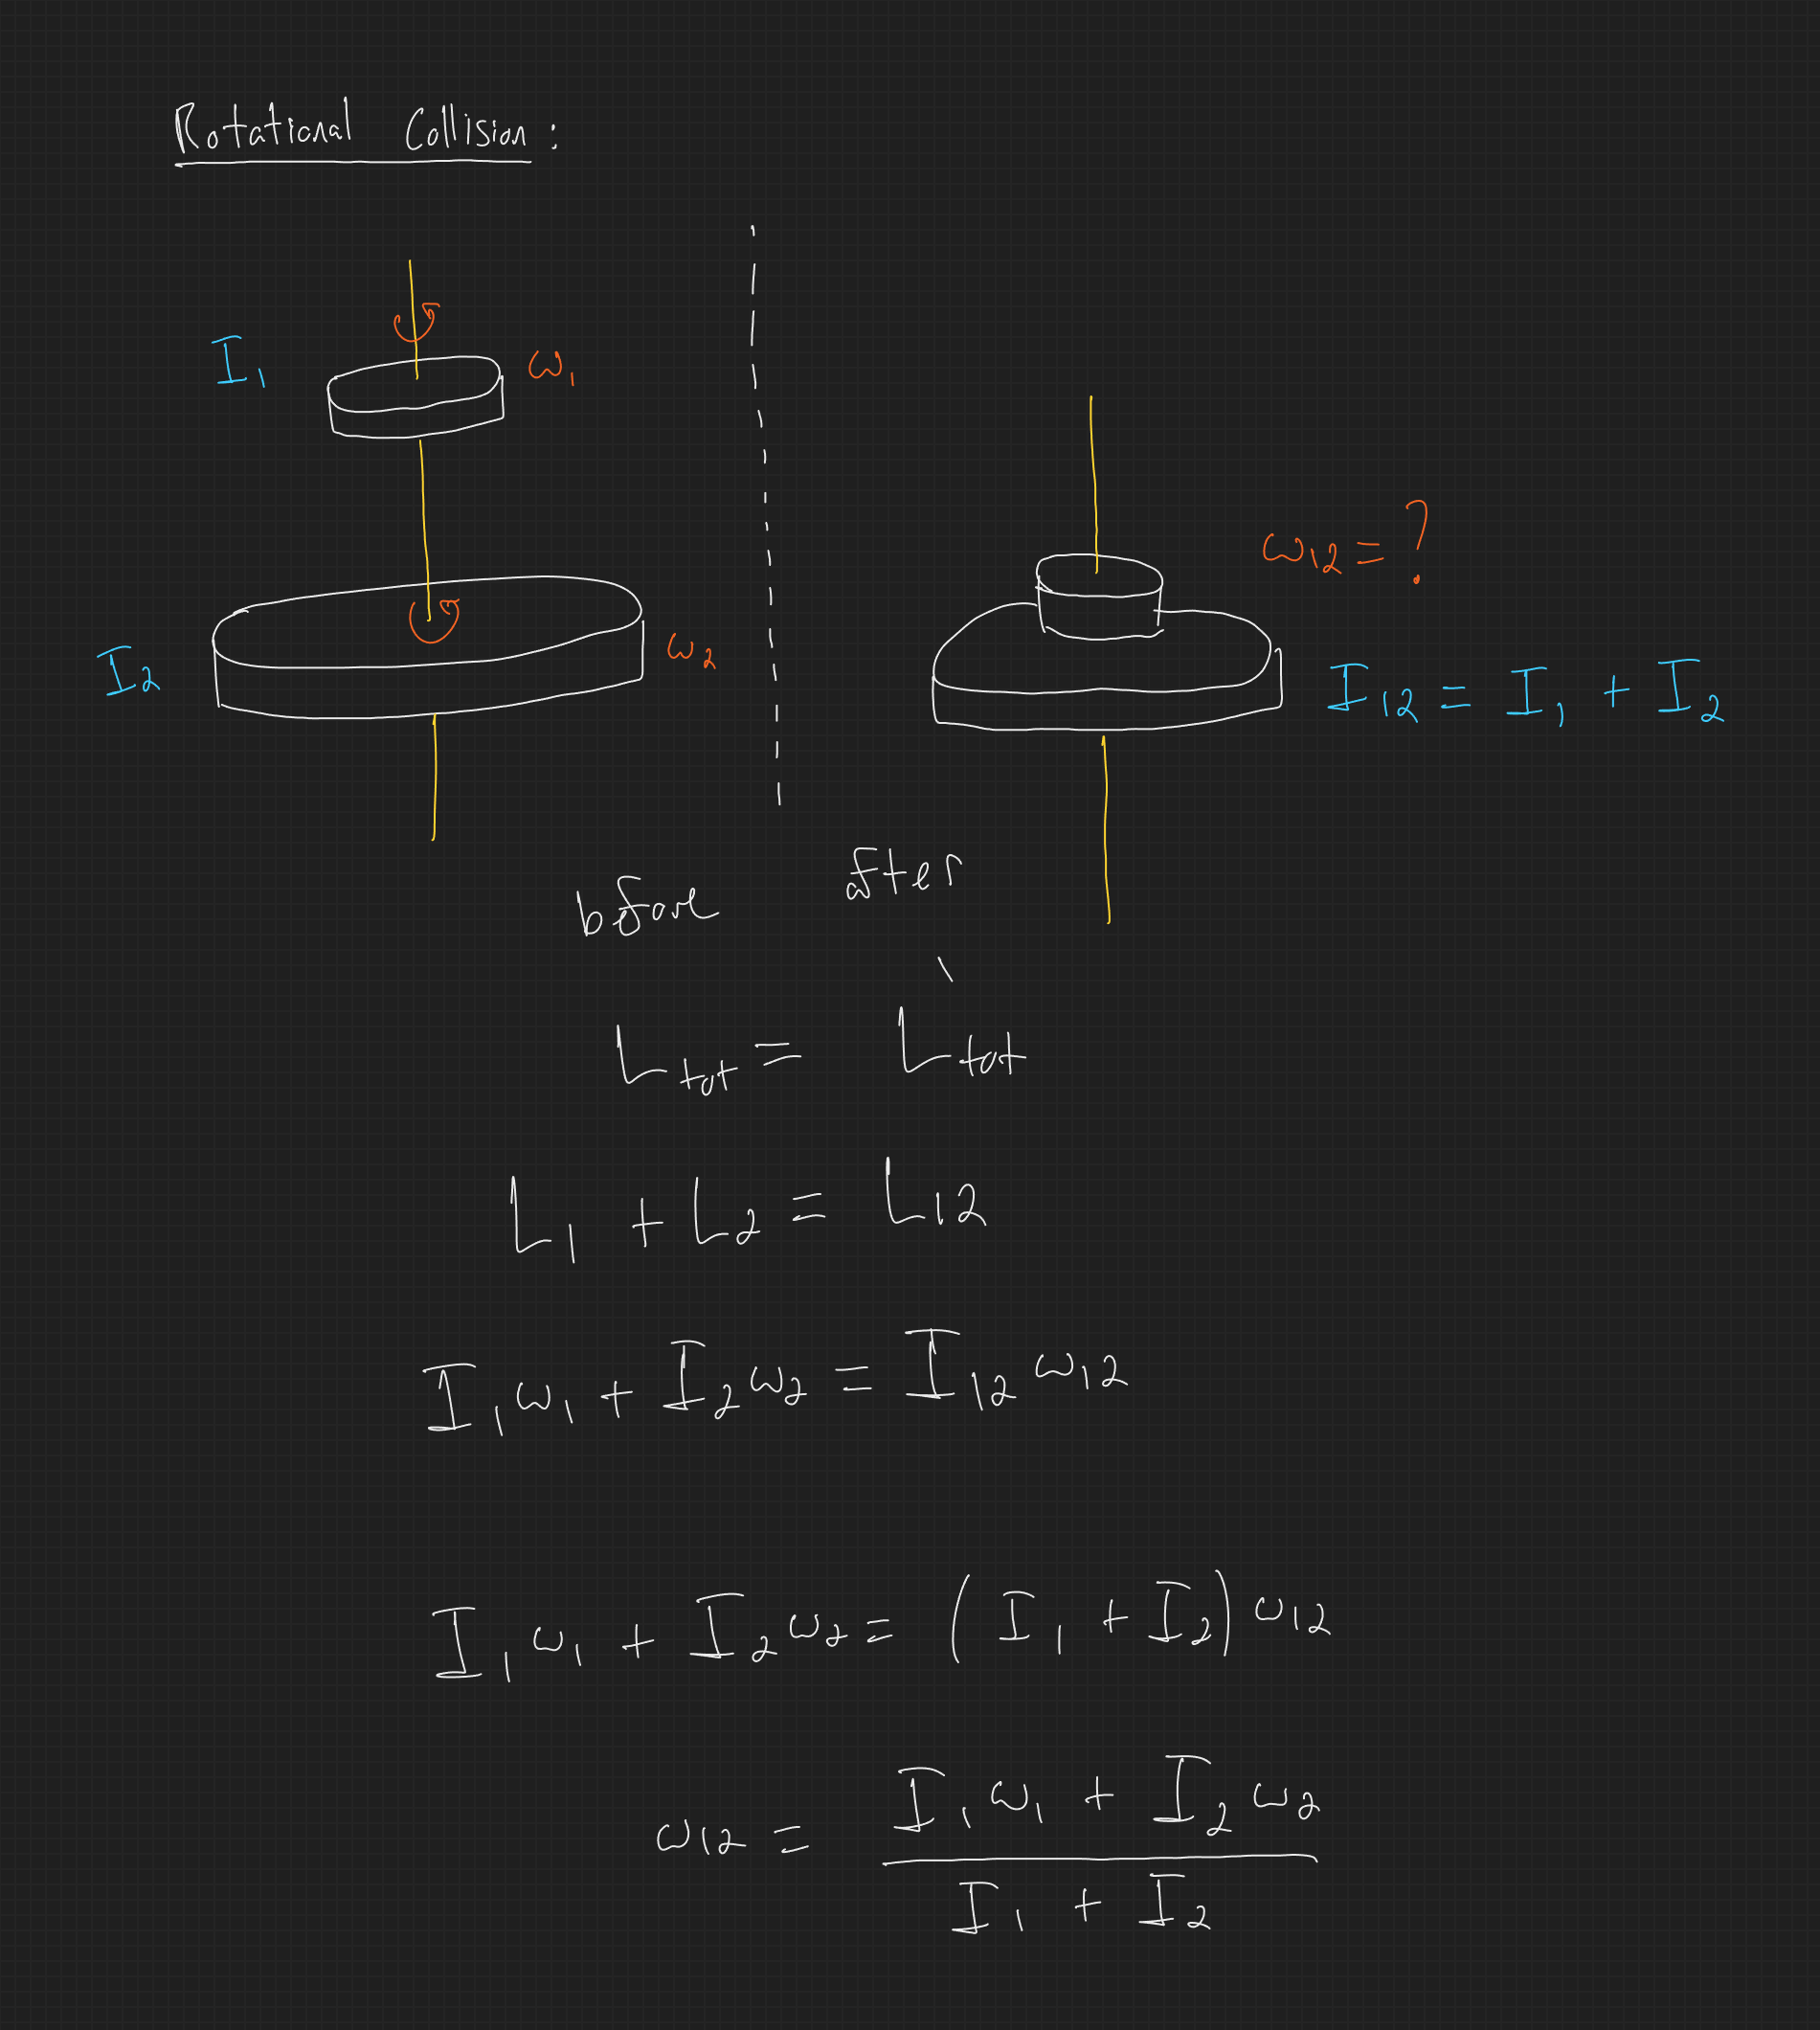 Rotational Collision:
I₁ ω₁
ω₁₂ = ?
I₂ ω₂
I₁₂ = I₁ + I₂
before after
L_tot = L_tot
L₁ + L₂ = L₁₂
I₁ω₁ + I₂ω₂ = I₁₂ω₁₂
I₁ω₁ + I₂ω₂ = (I₁ + I₂)ω₁₂
ω₁₂ = (I₁ω₁ + I₂ω₂) / (I₁ + I₂)